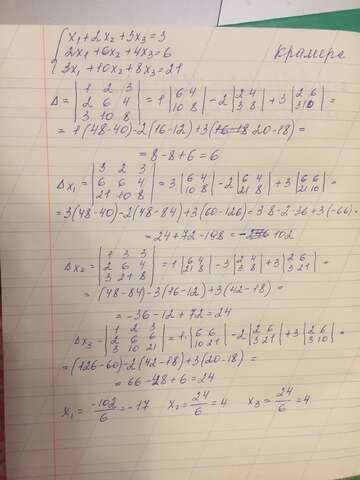 x₁+2x₂+3x₃=3
2x₁+6x₂+4x₃=6 Крамера
3x₁+10x₂+8x₃=21
Δ = |1 2 3; 2 6 4; 3 10 8| = 1 |6 4; 10 8| -2 |2 4; 3 8| +3 |2 6; 3 10| =
= 1(48-40)-2(16-12)+3(20-18)=
= 8-8+6=6
Δx₁ = |3 2 3; 6 6 4; 21 10 8| = 3 |6 4; 10 8| -2 |6 4; 21 8| +3 |6 6; 21 10| =
=3(48-40)-2(48-84)+3(60-126)=3·8-2·36+3(-66)=
=24+72-148= -102
Δx₂ = |1 3 3; 2 6 4; 3 21 8| = 1 |6 4; 21 8| -3 |2 4; 3 8| +3 |2 6; 3 21| =
= (48-84)-3(16-12)+3(42-18)=
= -36-12+72=24
Δx₃ = |1 2 3; 2 6 6; 3 10 21| = 1· |6 6; 10 21| -2 |2 6; 3 21| +3 |2 6; 3 10| =
=(126-60)-2(42-18)+3(20-18)=
= 66-48+6=24
x₁ = -102/6 = -17 x₂ = 24/6 = 4 x₃ = 24/6 = 4